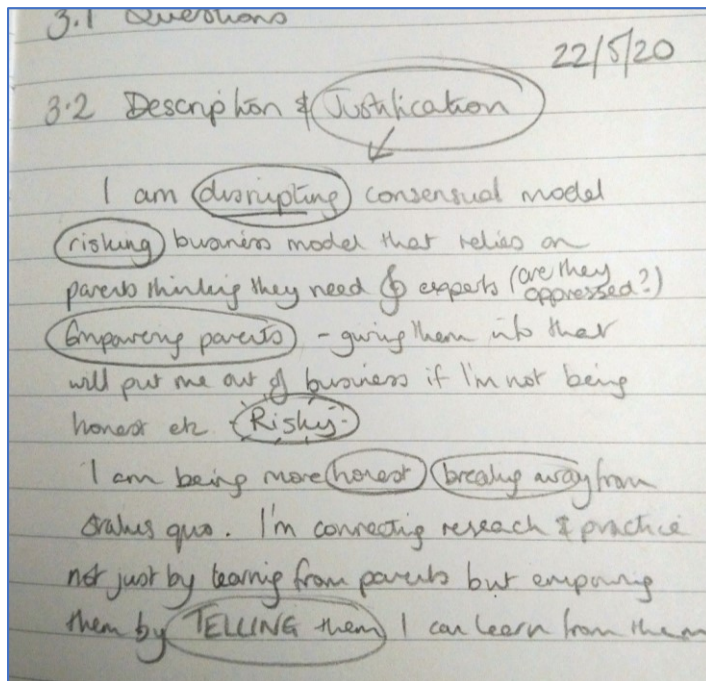 3.1 Questions
22/5/20
3.2 Description & Justification
I am disrupting consensual model
risking business model that relies on
parents thinking they need experts (are they
oppressed?)
Empowering parents - giving them info that
will put me out of business if I'm not being
honest etc Risky.
I am being more honest breaking away from
status quo. I'm connecting research & practice
not just by learning from parents but empowering
them by TELLING them I can learn from them